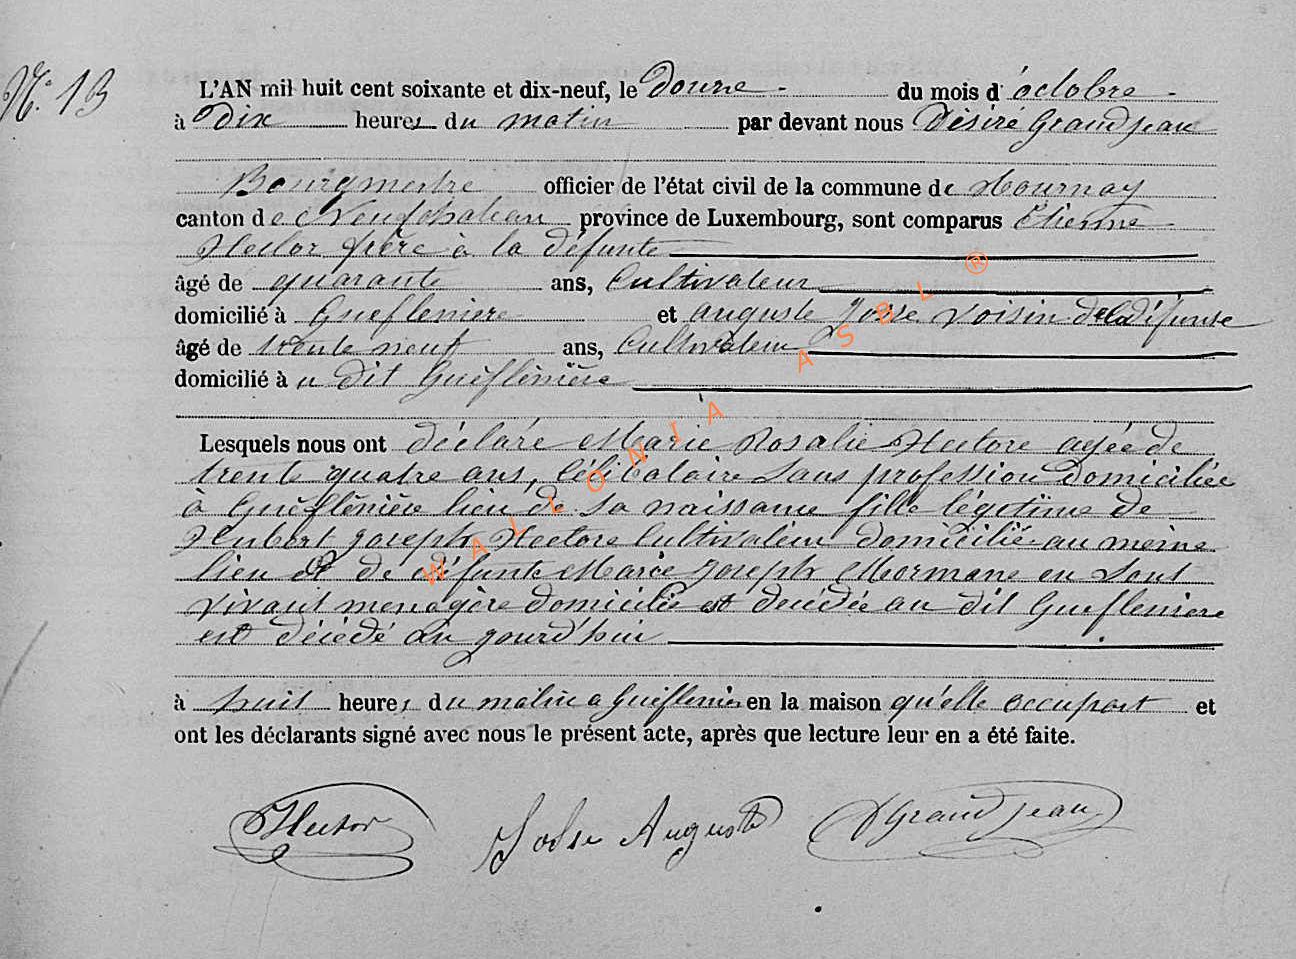 N° 13
L'AN mil huit cent soixante et dix-neuf, le Douze du mois d'octobre
à Dix heures du matin par devant nous Désiré Grandjean
Bourgmestre officier de l'état civil de la commune de Tournay
canton de Neufchateau province de Luxembourg, sont comparus Etienne
Hector frère à la défunte
âgé de quarante ans, Cultivateur
domicilié à Guefleniere et auguste Josse voisin de la défunte
âgé de trente neuf ans, Cultivateur
domicilié à u dit Guèflènière
Lesquels nous ont déclaré Marie Rosalie Hectore agée de
trente quatre ans, Célibataire Sans profession Domiciliée
à Guèflènière lieu de Sa naissance fille légetime de
Hubert Joseph Hectore Cultivateur domicilié au meme
lieu et de défunte Marie Joseph Mormane en Sont
vivant menagère domiciliée et decédée au dit Guefleniere
est décédé au jourd'hui
à huit heures du matin a Gueflenier en la maison qu'elle occupait et
ont les déclarants signé avec nous le présent acte, après que lecture leur en a été faite.
Hector Josse Auguste DGrandjean
WALLONIA ASBL ®